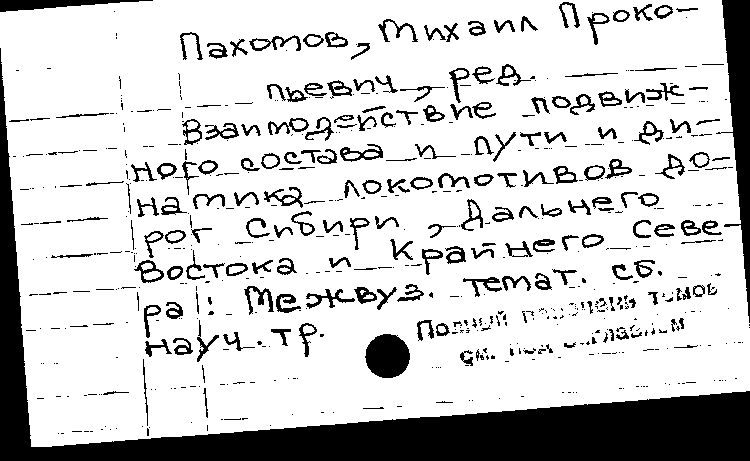 Пахомов, Михаил Проко-
пьевич, ред.
Взаимодействие подвиж-
ного состава и пути и ди-
намика локомотивов до-
рог Сибири, Дальнего
Востока и Крайнего Севе-
ра : Межвуз. темат. сб.
науч. тр.
Полный перечень томов
см. под заглавием